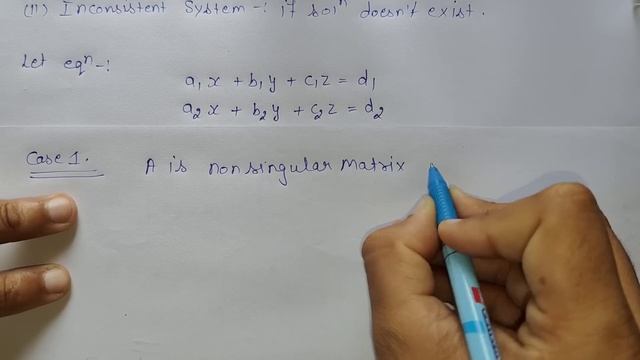 (11) Inconsistent System -: if solⁿ doesn't exist.
Let eqⁿ -:
a₁x + b₁y + c₁z = d₁
a₂x + b₂y + c₂z = d₂
Case 1. A is nonsingular Matrix